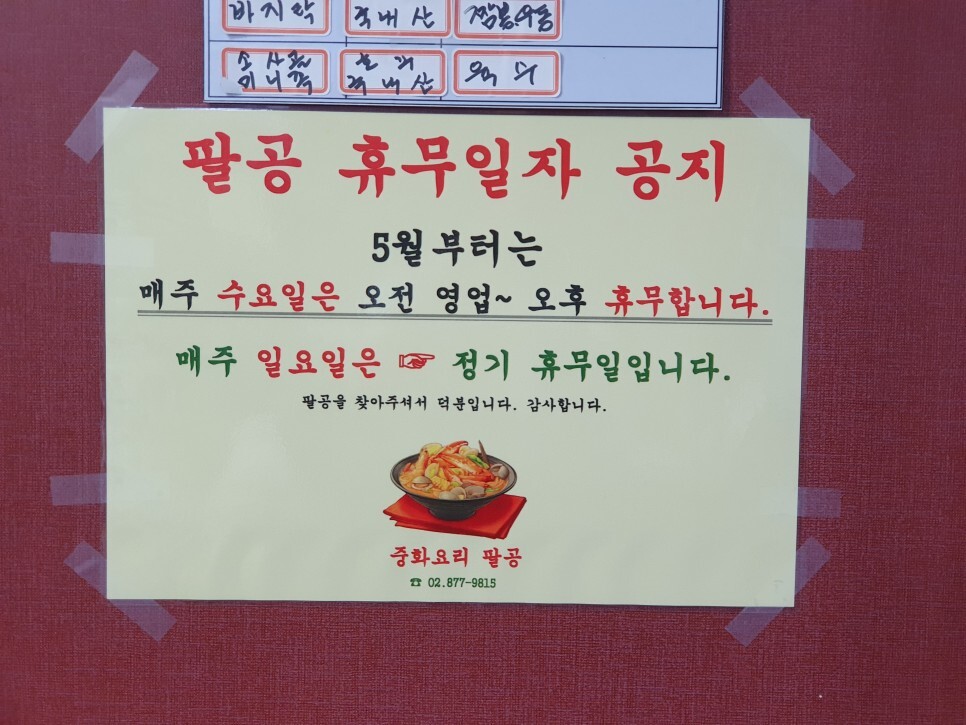 바지락 국내산 짬뽕.우동
국내산
팔공 휴무일자 공지
5월부터는
매주 수요일은 오전 영업~ 오후 휴무합니다.
매주 일요일은 ☞ 정기 휴무일입니다.
팔공을 찾아주셔서 덕분입니다. 감사합니다.
중화요리 팔공
☎ 02.877-9815